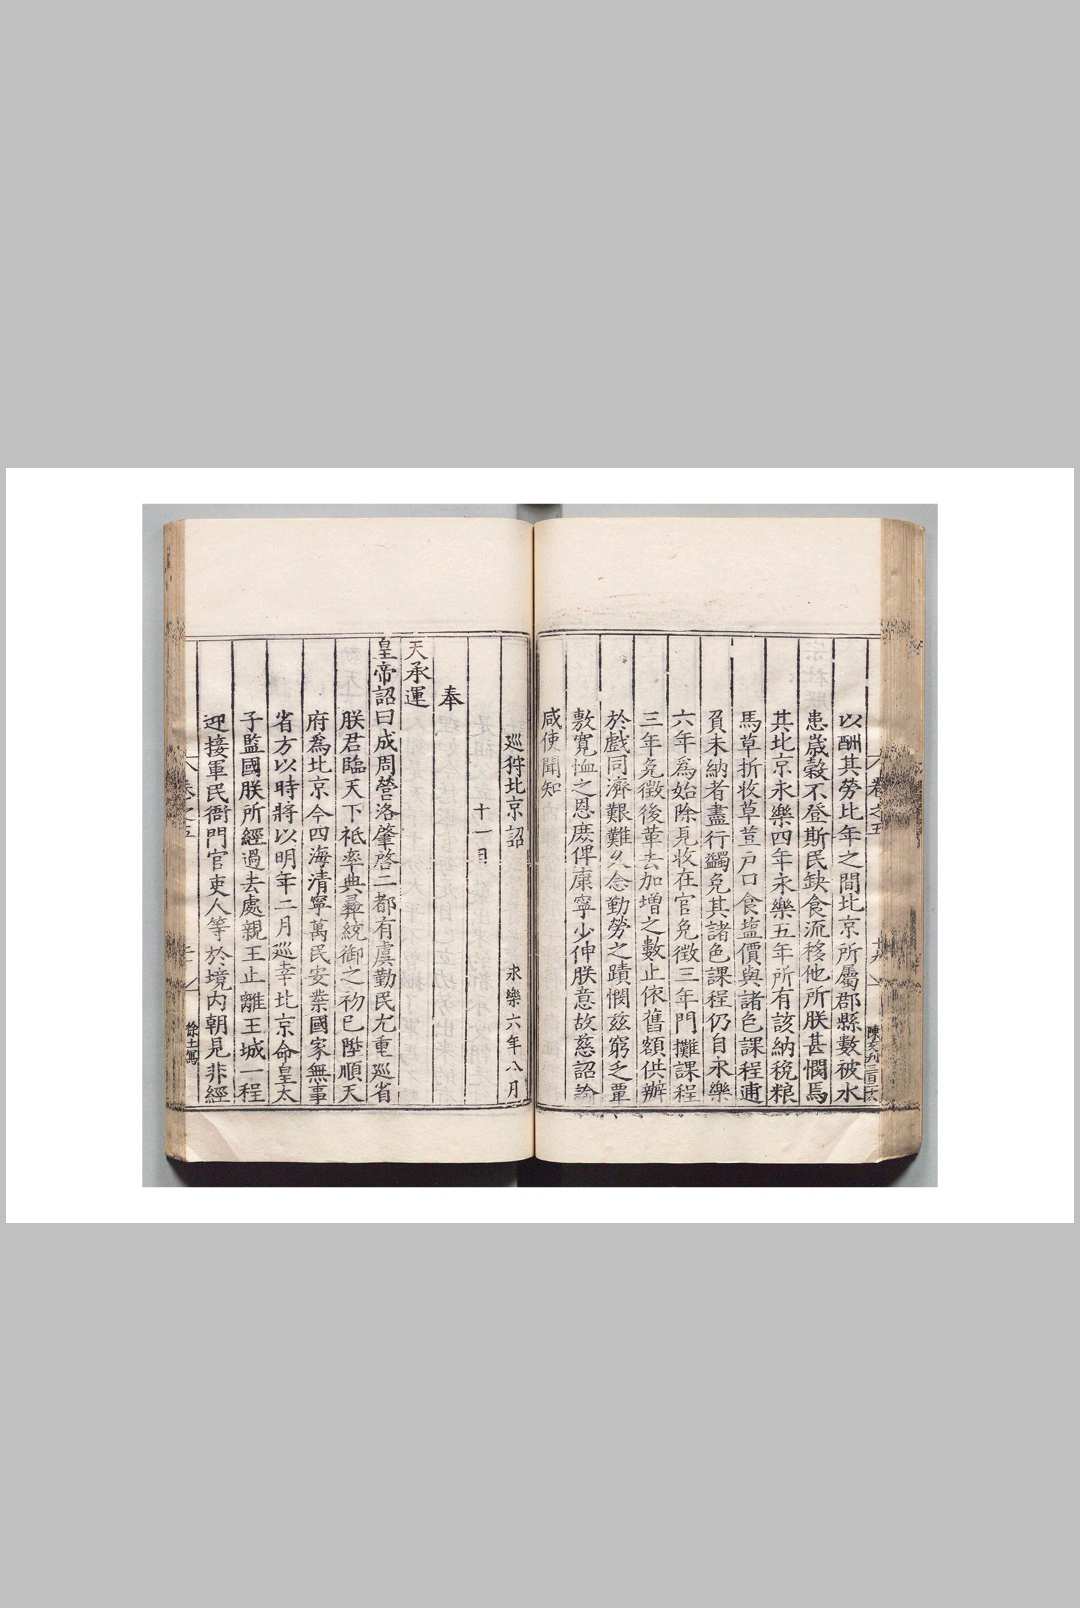 以酬其勞比年之間北京所屬郡縣數被水
患歲穀不登斯民缺食流移他所朕甚憫焉
其北京永樂四年永樂五年所有該納稅粮
馬草折收草荳戶口食塩價與諸色課程逋
負未納者盡行蠲免其諸色課程仍自永樂
六年爲始除見收在官免徵三年門攤課程
三年免徵後革去加增之數止依舊額供辦
於戲同濟艱難久念勤勞之蹟憫茲窮乏覃
敷寛恤之恩庶俾康寧少伸朕意故慈詔諭
咸使聞知
巡狩北京詔 永樂六年八月
十一日
奉
天承運
皇帝詔曰成周營洛肇啓二都有虞勤民尤重巡省
朕君臨天下祗率典彝統御之初已陞順天
府爲北京今四海清寧萬民安業國家無事
省方以時將以明年二月巡幸北京命皇太
子監國朕所經過去處親王止離王城一程
迎接軍民衙門官吏人等於境内朝見非經
卷之五
徐士寫